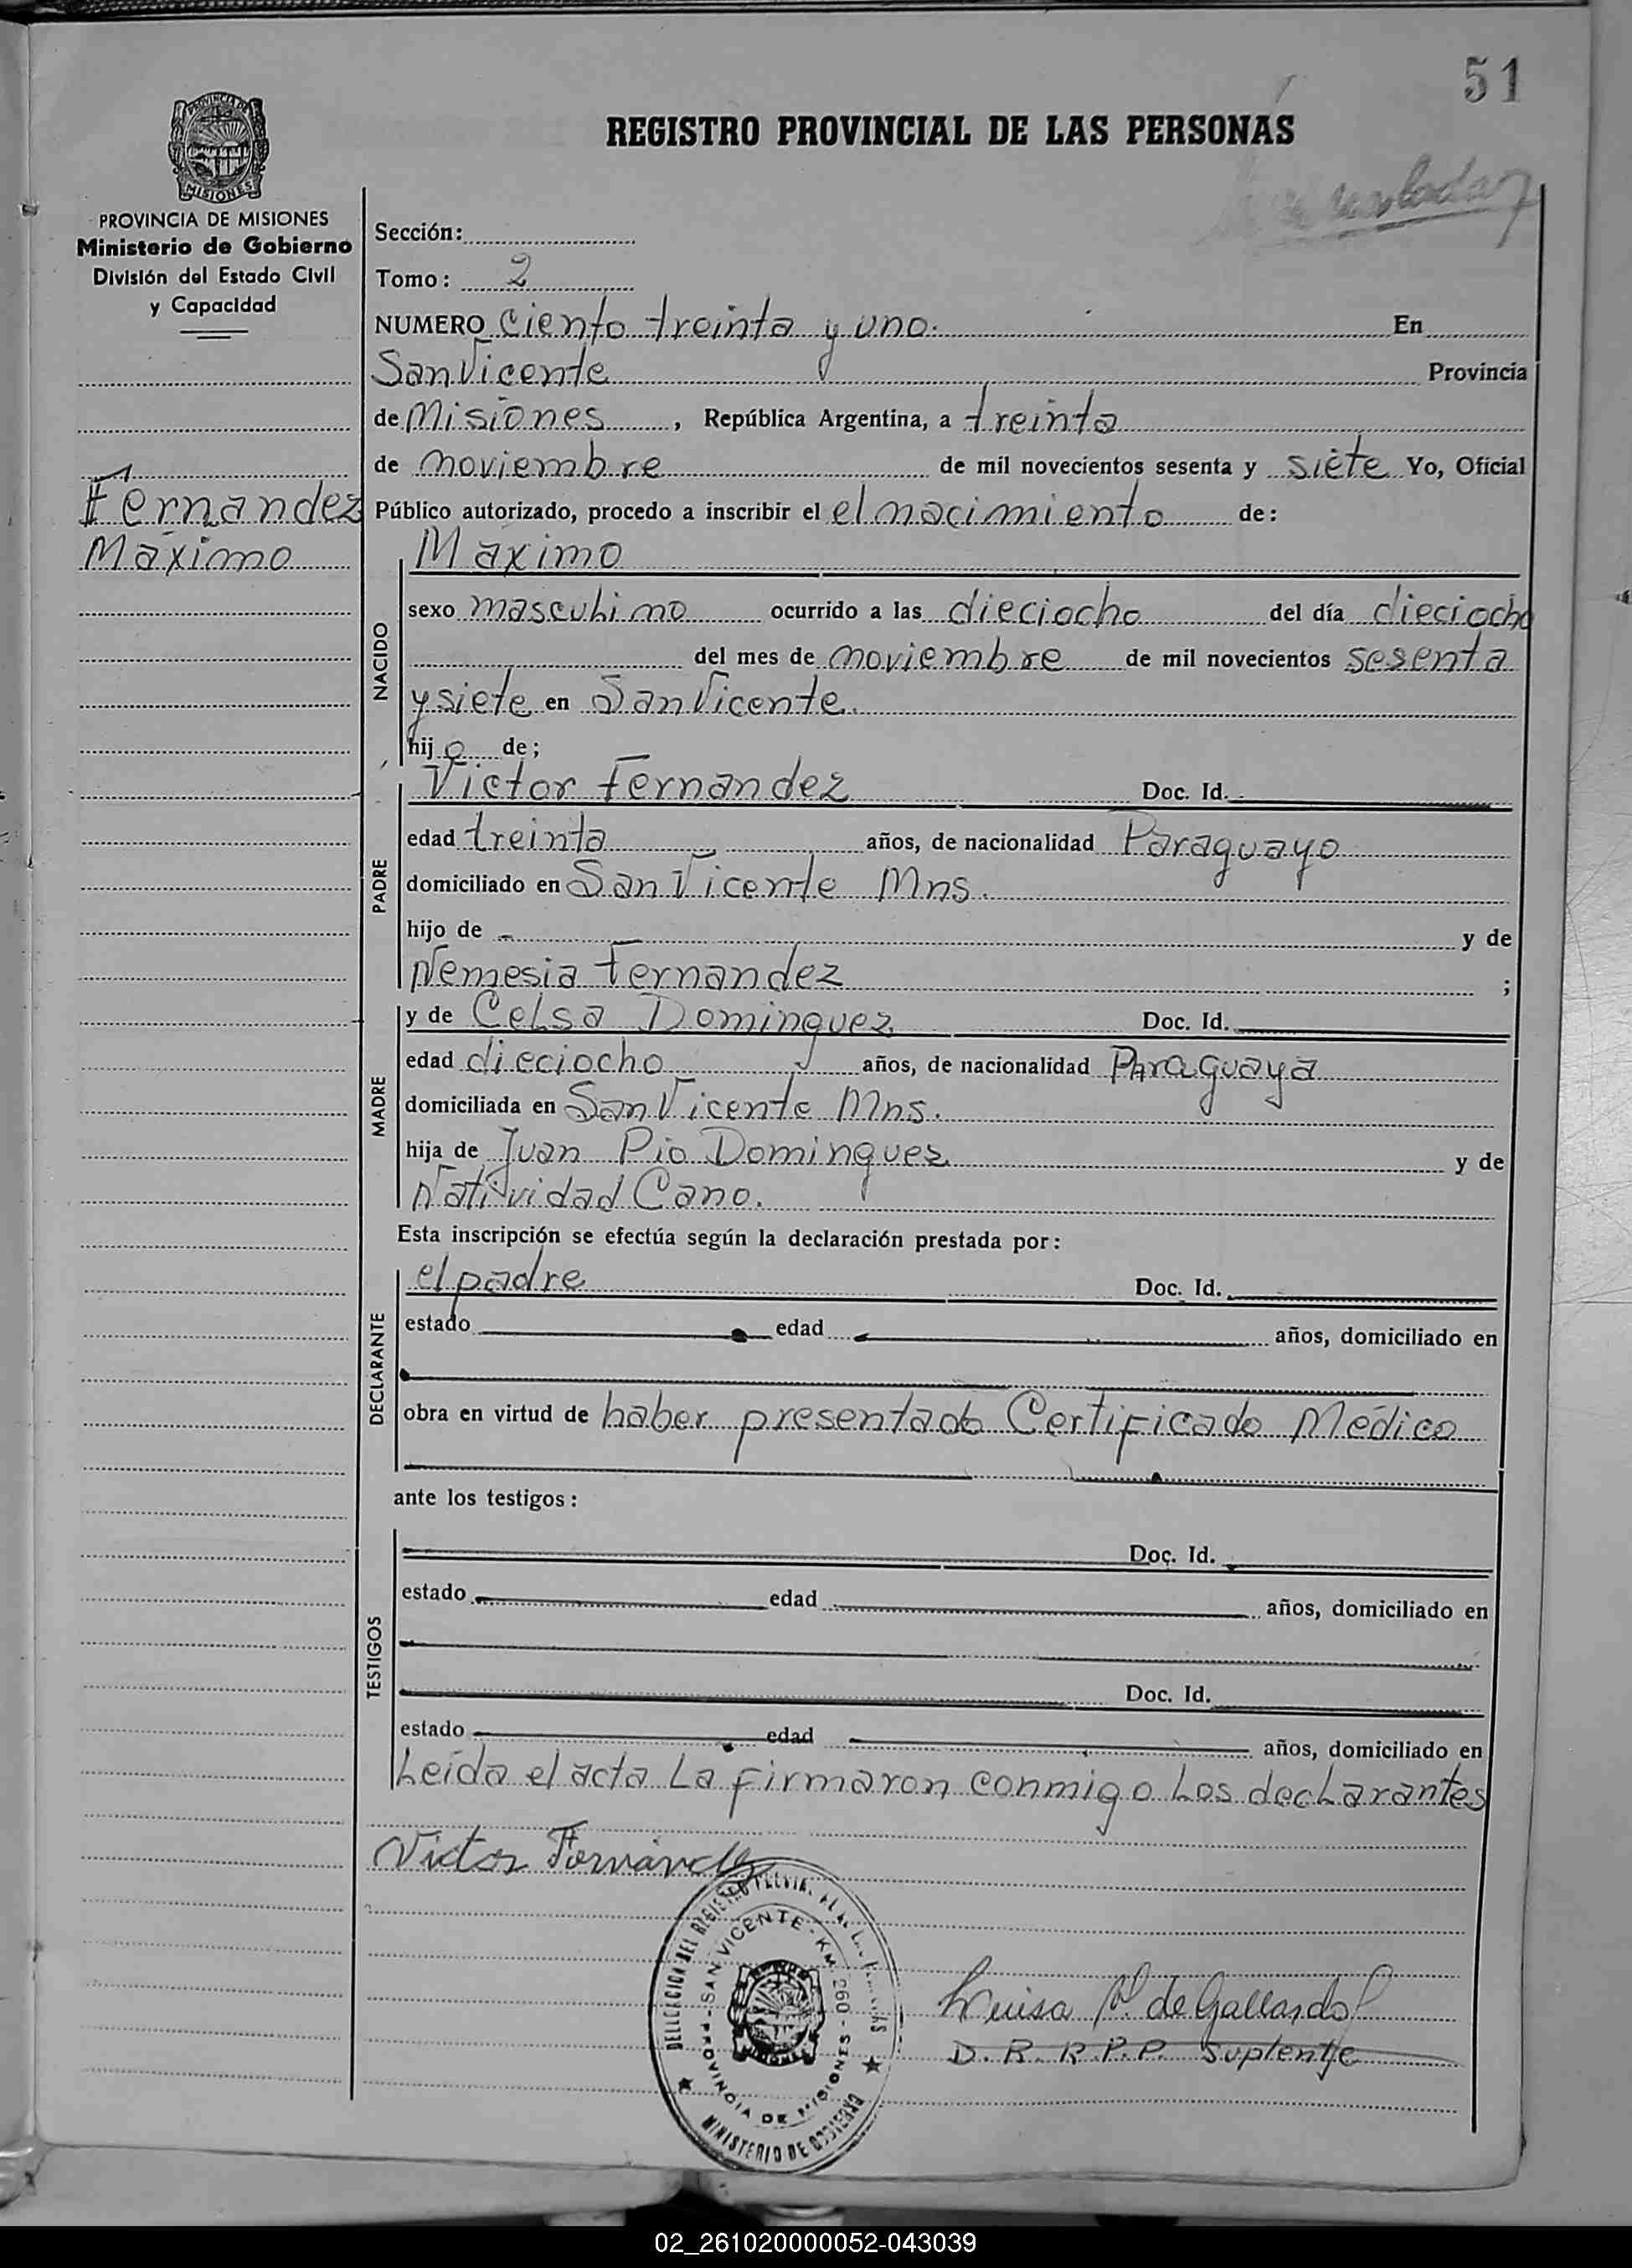 51
REGISTRO PROVINCIAL DE LAS PERSONAS
PROVINCIA DE MISIONES
Ministerio de Gobierno
División del Estado Civil
y Capacidad
Fernandez
Máximo
Sección:
Tomo: 2
NUMERO ciento treinta y uno. En
San Vicente Provincia
de Misiones, República Argentina, a treinta
de noviembre de mil novecientos sesenta y siete Yo, Oficial
Público autorizado, procedo a inscribir el el nacimiento de:
NACIDO
Maximo
sexo masculino ocurrido a las dieciocho del día dieciocho
del mes de noviembre de mil novecientos sesenta
y siete en San Vicente.
hijo de;
PADRE
Victor Fernandez Doc. Id.
edad treinta años, de nacionalidad Paraguayo
domiciliado en San Vicente Mns.
hijo de - y de
Nemesia Fernandez ;
MADRE
y de Celsa Dominguez Doc. Id.
edad dieciocho años, de nacionalidad Paraguaya
domiciliada en San Vicente Mns.
hija de Juan Pio Dominguez y de
Natividad Cano.
Esta inscripción se efectúa según la declaración prestada por:
DECLARANTE
el padre Doc. Id.
estado edad años, domiciliado en
obra en virtud de haber presentado Certificado Médico
ante los testigos:
TESTIGOS
Doc. Id.
estado edad años, domiciliado en
Doc. Id.
estado edad años, domiciliado en
Leída el acta La firmaron conmigo Los declarantes
Victor Fernández
DELEGACION DEL REGISTRO
SAN VICENTE - KM 260 - PROVINCIA DE MISIONES
MISIONES
MINISTERIO DE GOBIERNO
Luisa de Gallardo
D. R. R. P. P. Suplente
02_261020000052-043039